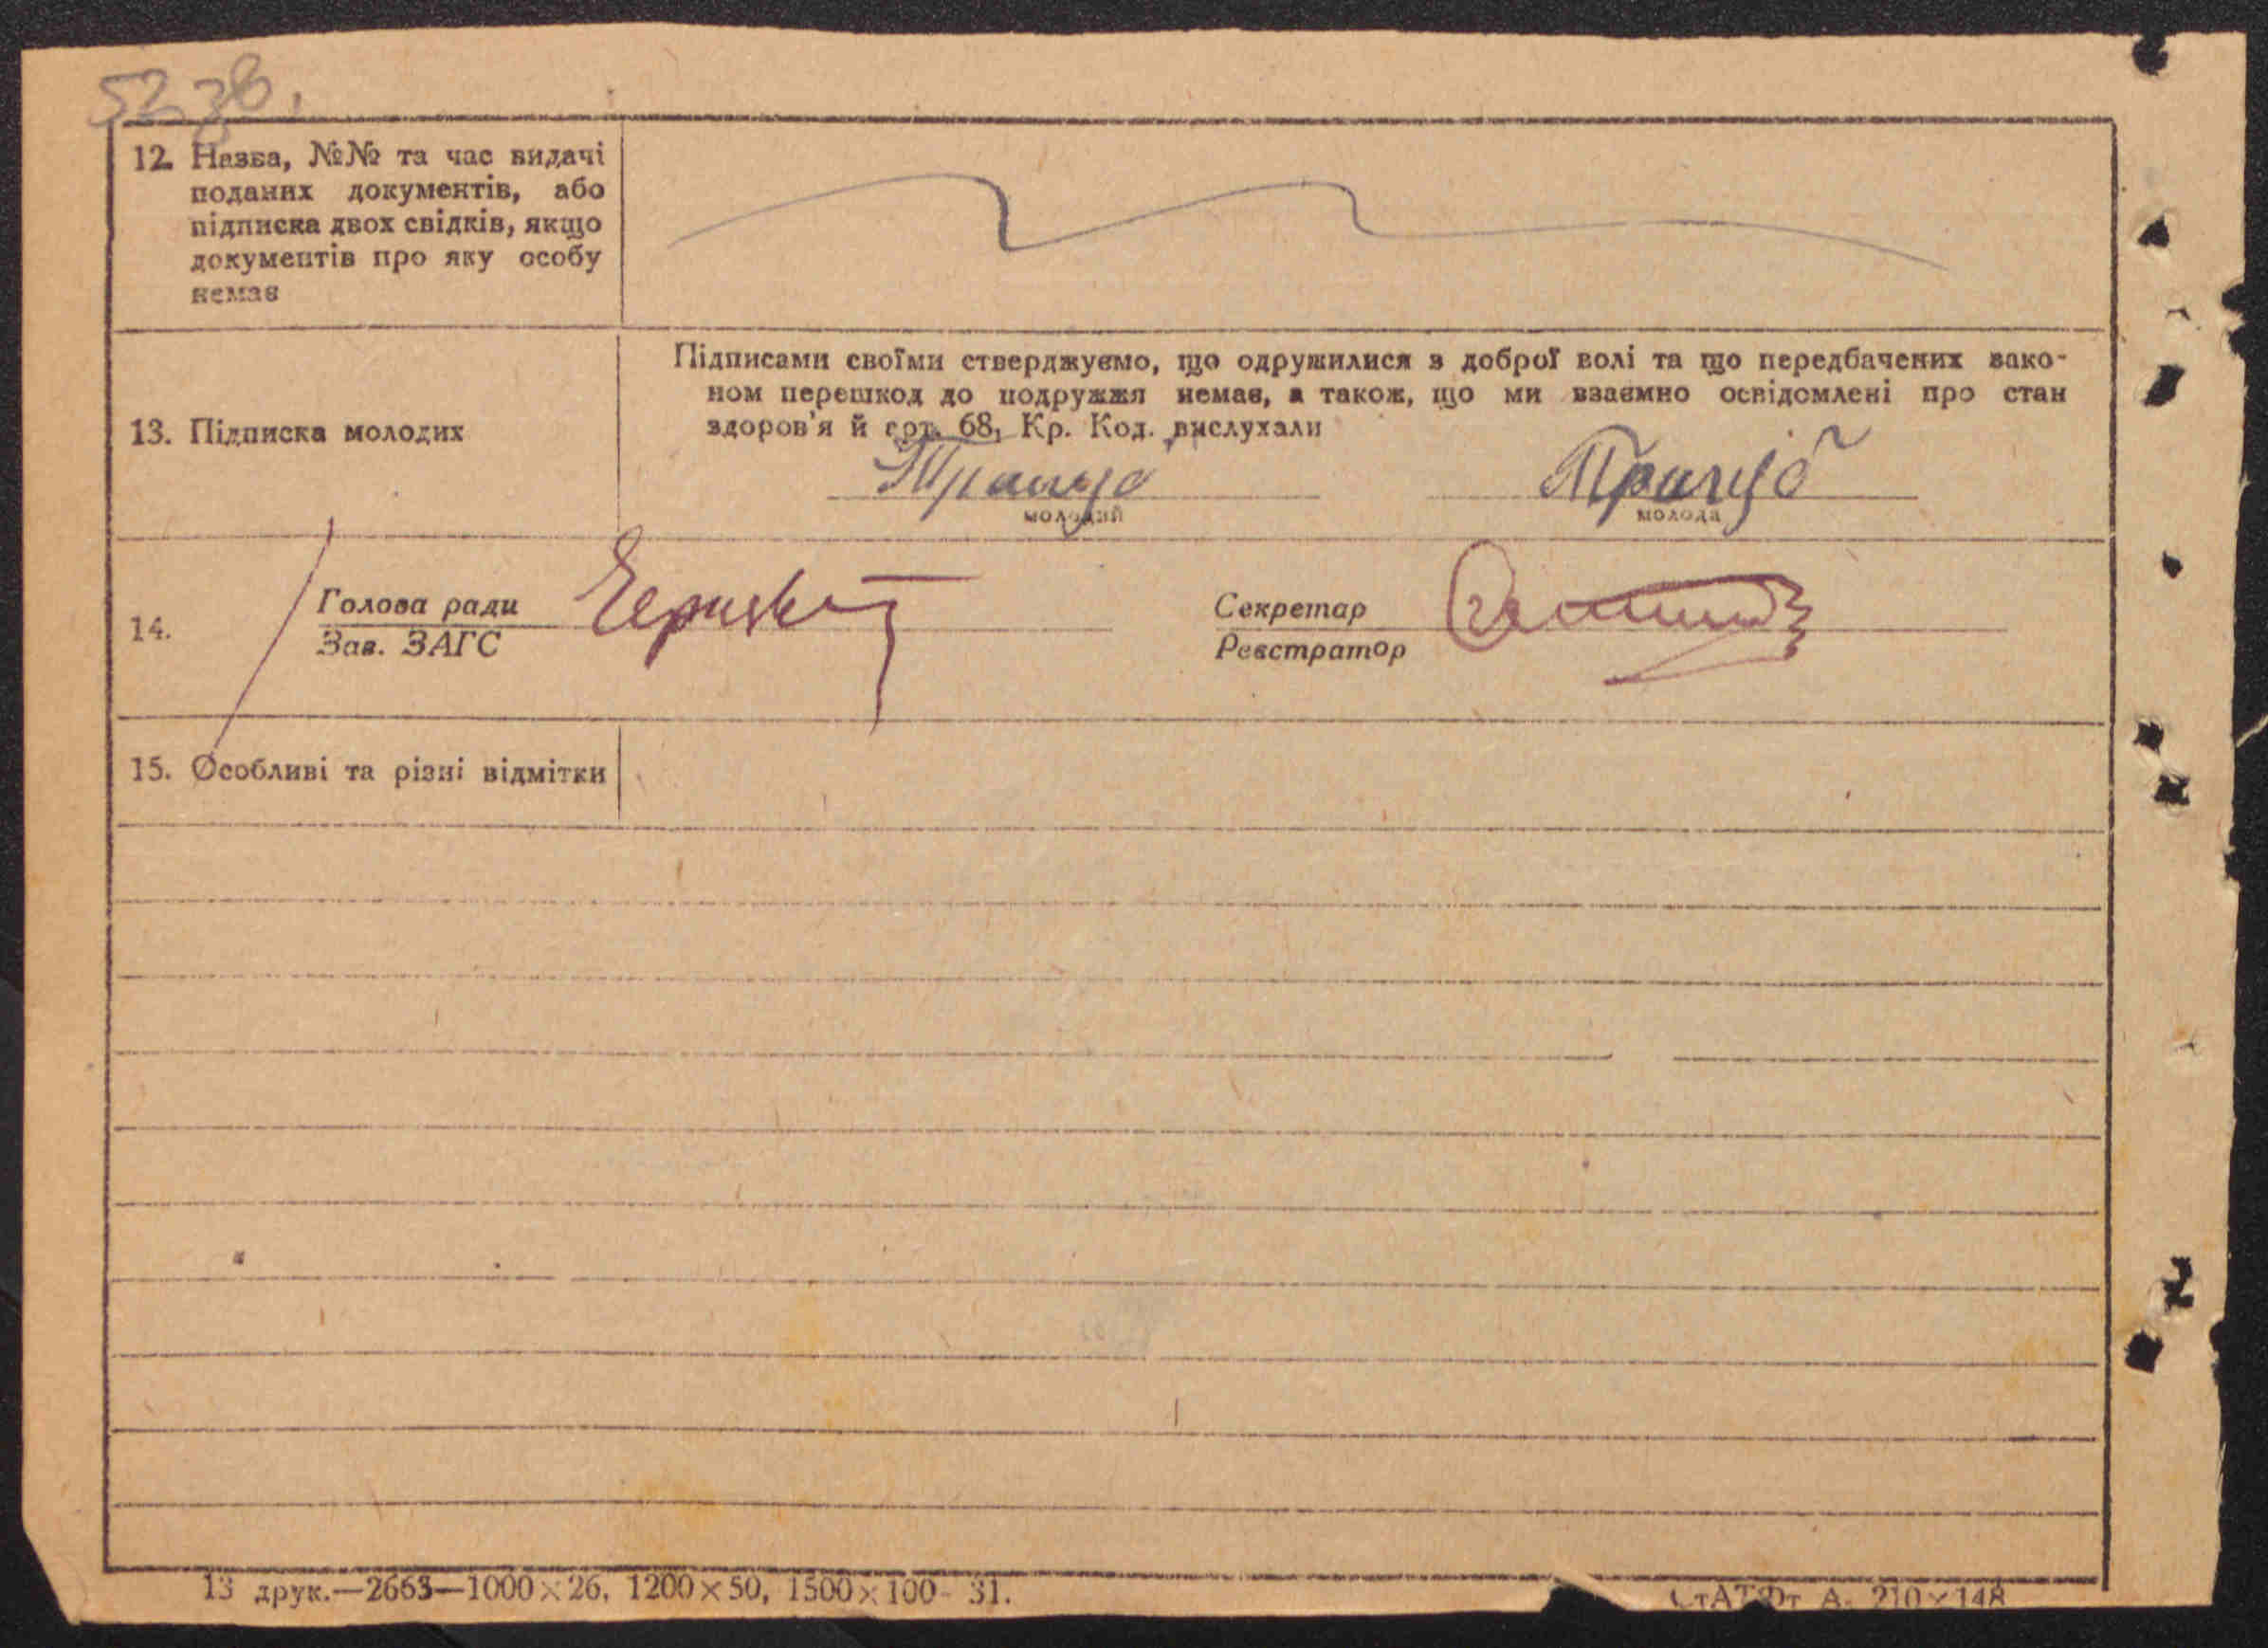 12. Назва, №№ та час видачі
поданих документів, або
підписка двох свідків, якщо
документів про яку особу
немає
Підписами своїми стверджуємо, що одружилися з доброї волі та що передбачених зако-
ном перешкод до подружжя немає, а також, що ми взаємно освідомлені про стан
здоров'я й арт. 68, Кр. Код. вислухали
13. Підписка молодих
молодий
молода
14.
Голова ради
Зав. ЗАГС
Секретар
Реєстратор
15. Особливі та різні відмітки
13 друк.—2663—1000×26, 1200×50, 1500×100- 31.
А 210×148